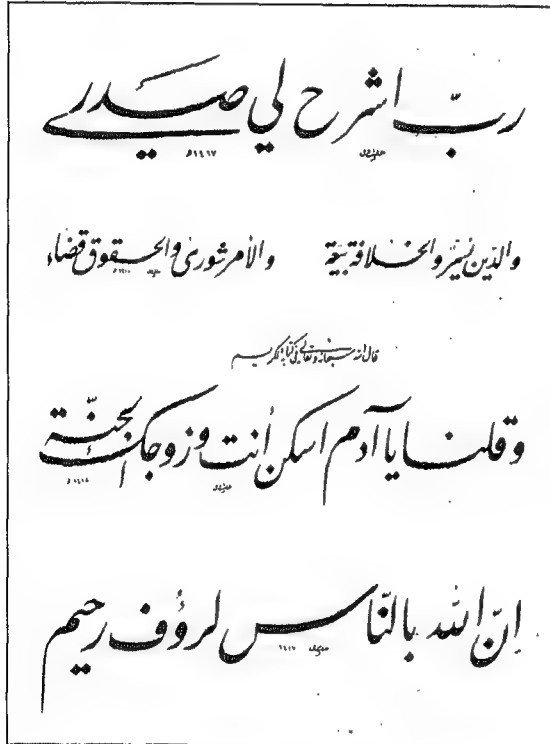 ربّ اشرح لي صدري
١٤١٧ هـ
والدّين يُسْرٌ والخلافة بَيْعَة والأمر شورى والحقوق قضاء
قال الله سبحانه وتعالى في كتابه الكريم
وقلنا يا آدم اسكن أنت وزوجك الجنّة
١٤١٨ هـ
انّ الله بالنّاس لرؤف رحيم
١٤١٧